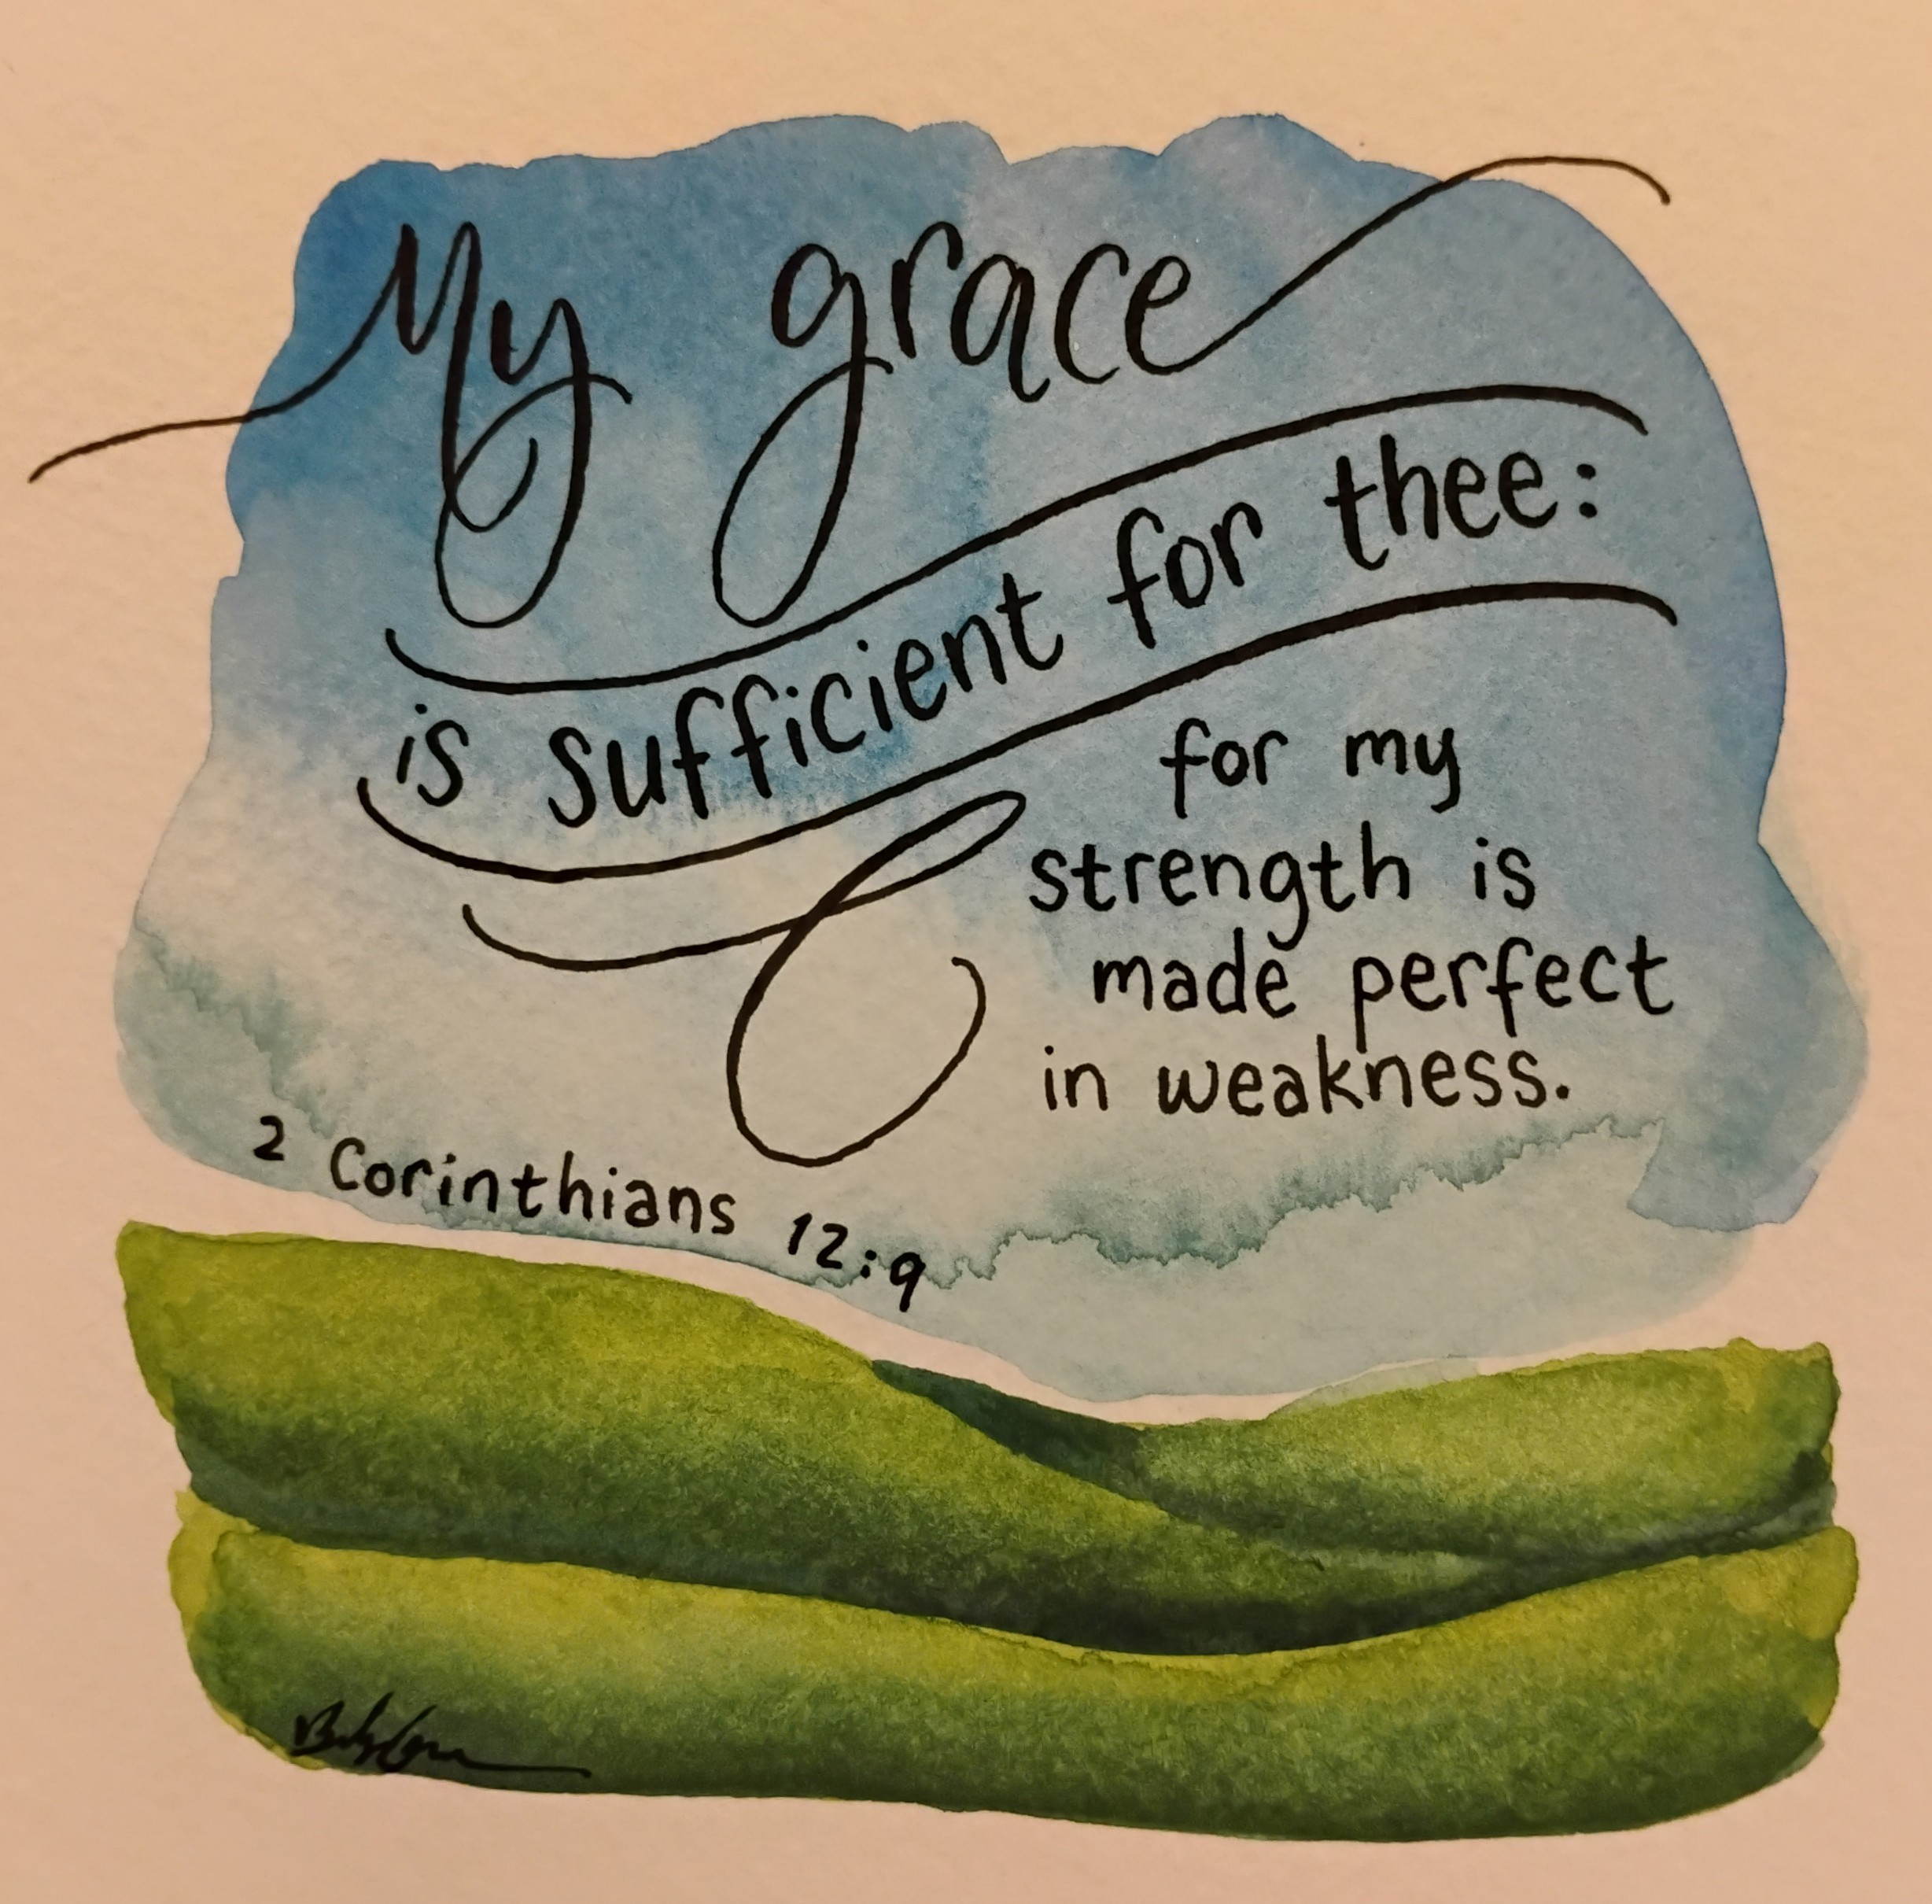 My grace
is sufficient for thee:
for my
strength is
made perfect
in weakness.
2 Corinthians 12:9